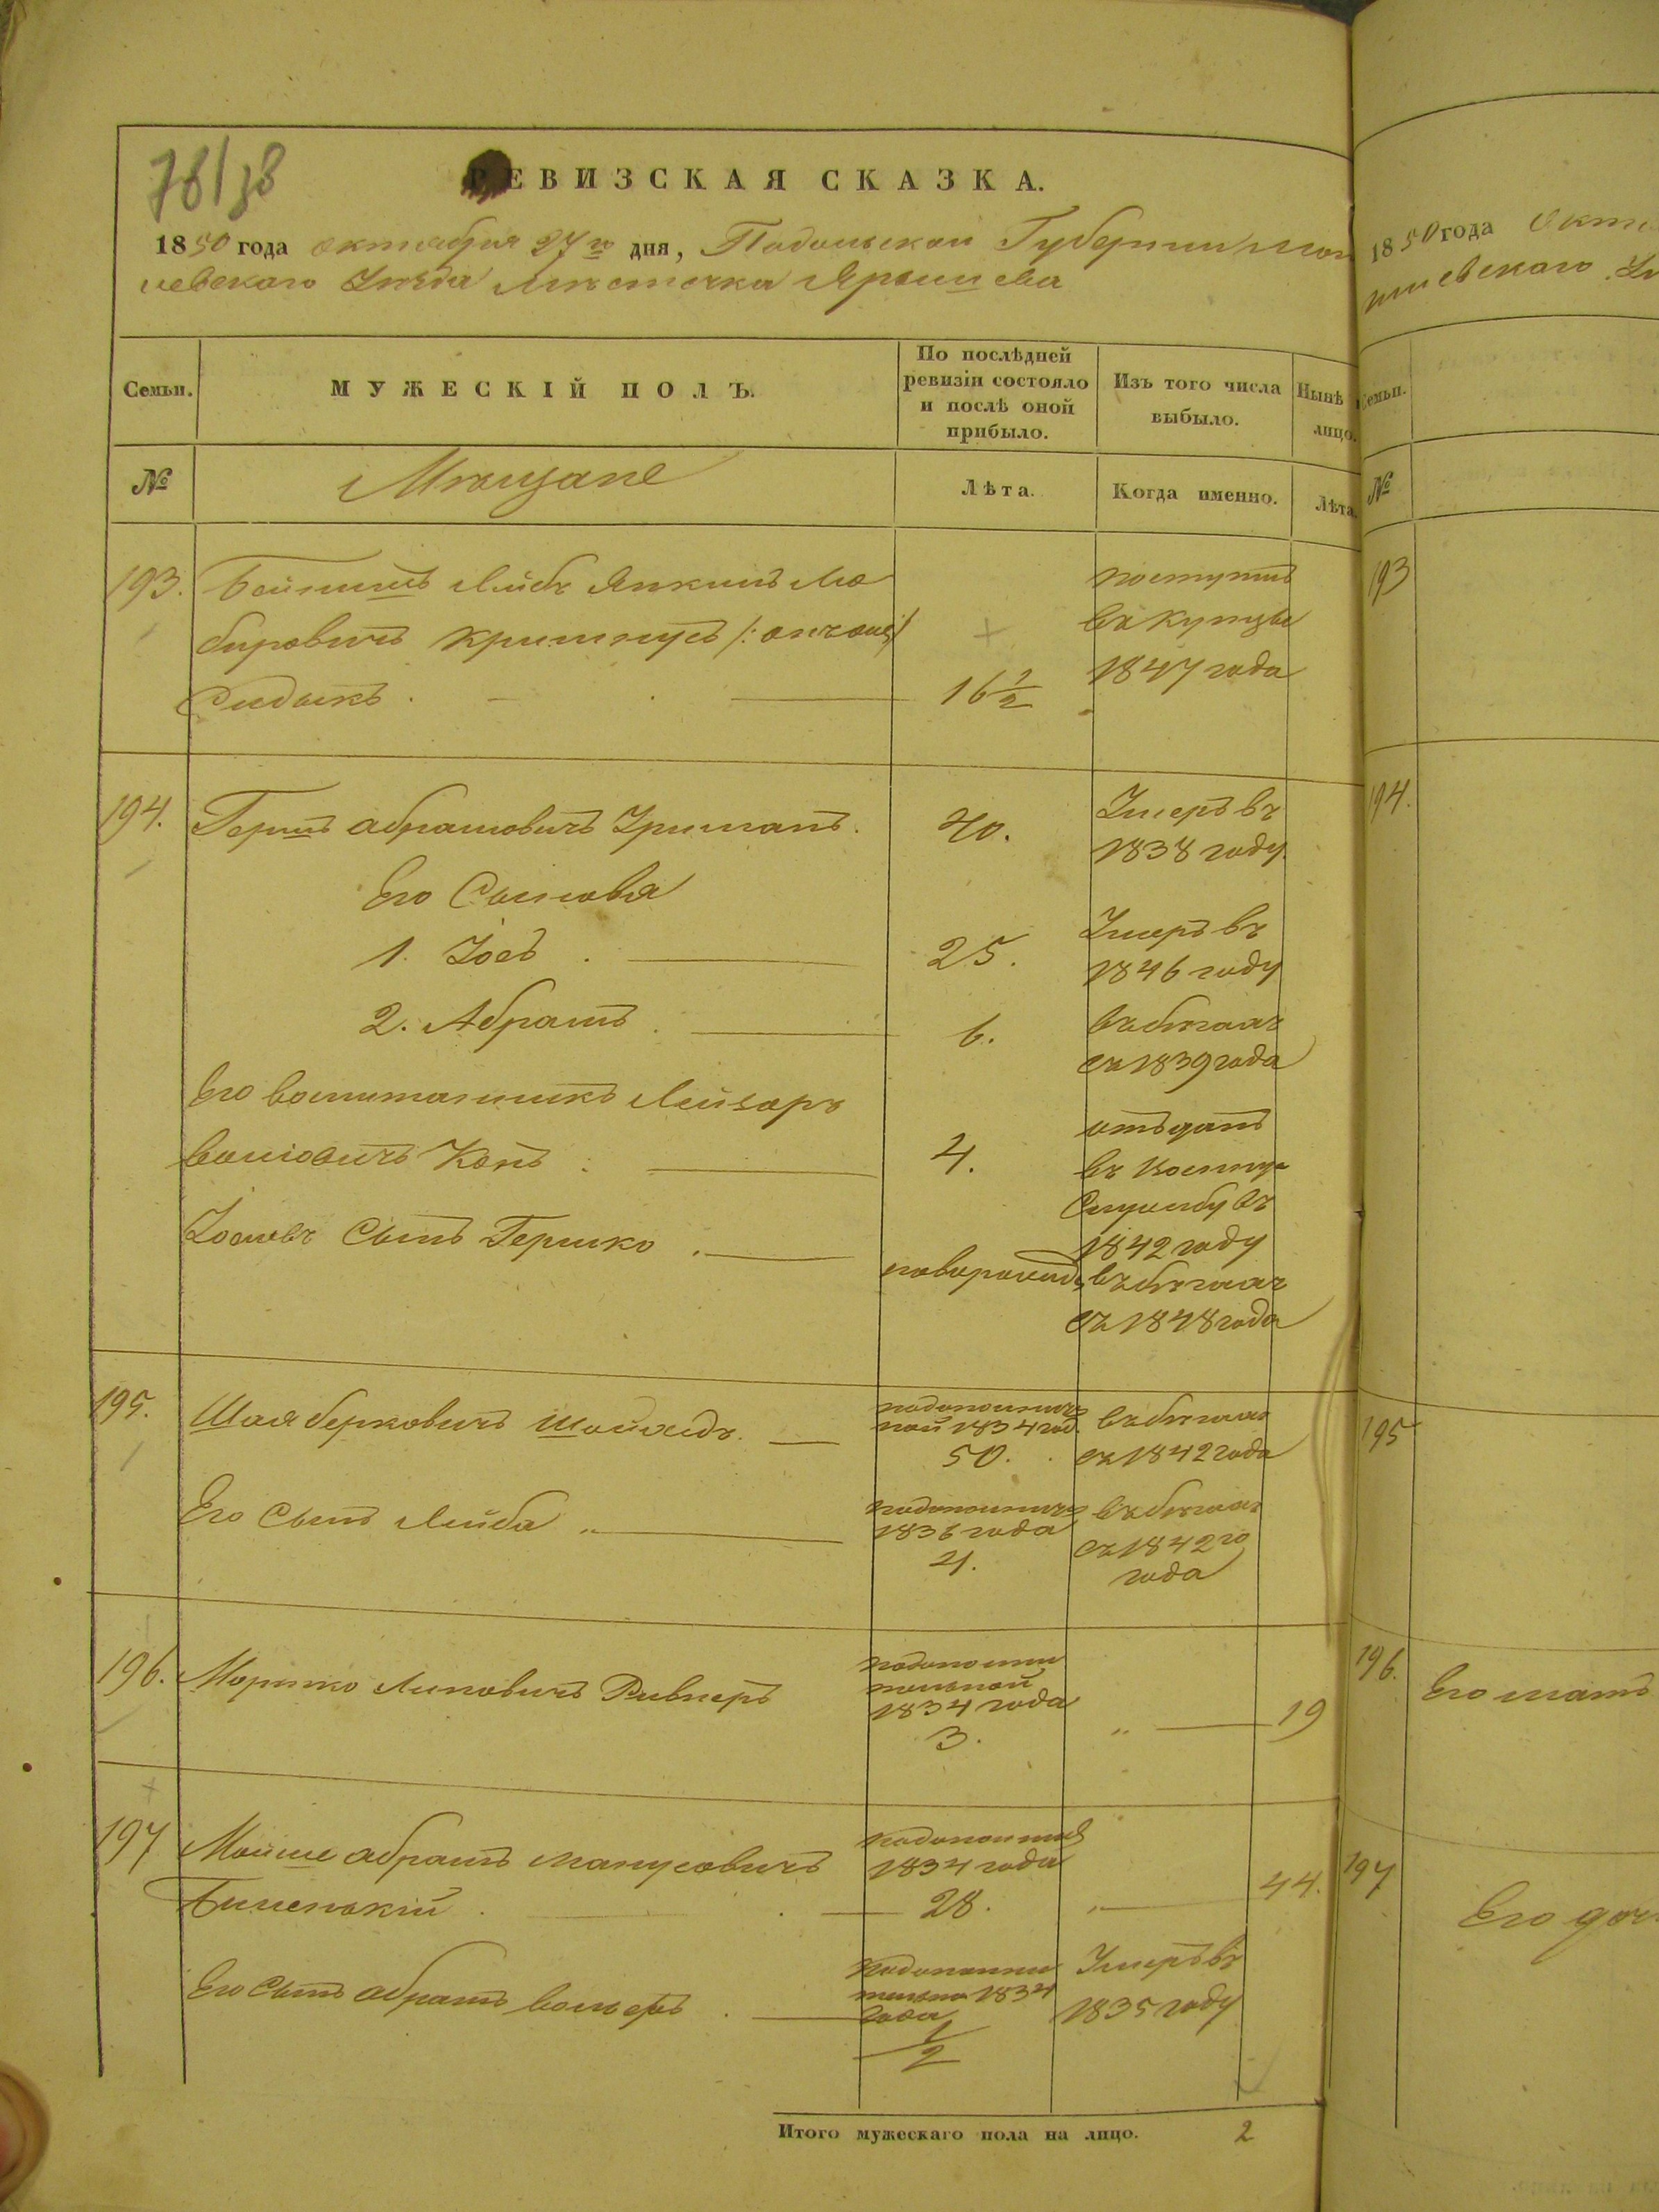 78/38
РЕВИЗСКАЯ СКАЗКА.
1850 года октября 27го дня, Подольской Губернии Мог
илевскаго Уезда Местечка Ярышева
Семьи.
МУЖЕСКІЙ ПОЛЪ.
По послѣдней
ревизіи состояло
и послѣ оной
прибыло.
Изъ того числа
выбыло.
Нынѣ
лицо.
№
Мѣщане
Лѣта.
Когда именно.
Лѣта.
193. Бейнишъ Лейбъ Янкиль
Кришнусъ
16 1/2
поступилъ
въ купцы
1847 года
194. Гершъ Абрамовичъ Урманъ.
40.
Умеръ въ
1838 году.
Его Сыновья
1. Iосъ
25.
Умеръ въ
1846 году
2. Абрамъ
6.
въ бѣгахъ
съ 1839 года
Его воспитанникъ Лейзоръ
Конъ
4.
отъданъ
въ военную
службу въ
1842 году
Iосевъ Сынъ Гершко
новорожд.
въ бѣгахъ
съ 1848 года
195. Шая Берковичъ Шойхедъ.
1834 год.
50.
въ бѣгахъ
съ 1842 года
Его Сынъ Лейба
1836 года
4.
въ бѣгахъ
съ 1842го
года
196. Мортко Липовичъ Ривнеръ
дополни
тельной
1834 года
3.
19
197 Мойше Абрамъ Манусовичъ
Биленькій
1834 года
28.
44.
Его Сынъ Абрамъ
1834
года
1/2
Умеръ въ
1835 году
Итого мужескаго пола на лицо. 2
1850 года Окт
Семьи.
№
193
194.
195
196. Его мать
197
Его доч